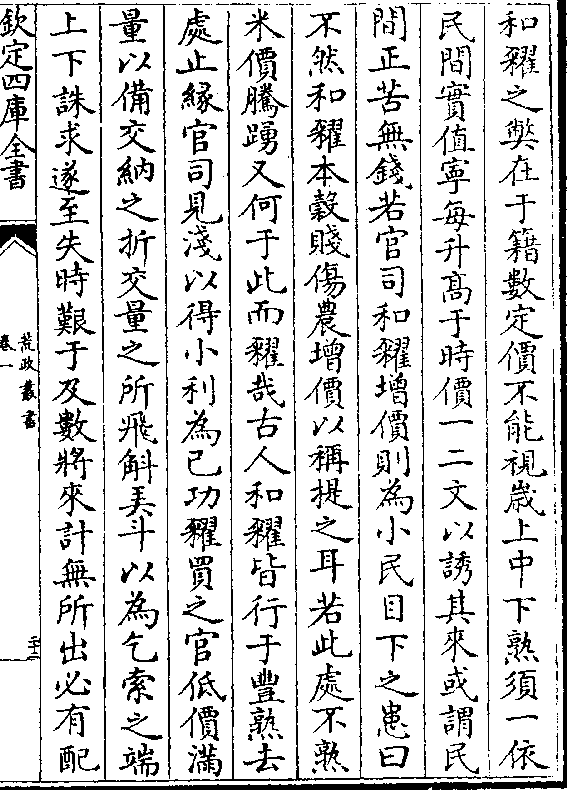 和糴之𡚁在于籍數定價不能視歳上中下熟須一依
民間實值寧每升髙于時價一二文以誘其來或謂民
間正苦無錢若官司和糴增價則為小民目下之患曰
不然和糴本榖賤傷農增價以稱提之耳若此處不熟
米價騰踴又何于此而糴哉古人和糴皆行于豐熟去
處止縁官司見淺以得小利為已功糴買之官低價滿
量以備交納之折交量之所飛斛美斗以為乞索之端
上下誅求遂至失時艱于及數將來計無所出必有配
欽定四庫全書
荒政叢書
卷一
二十二